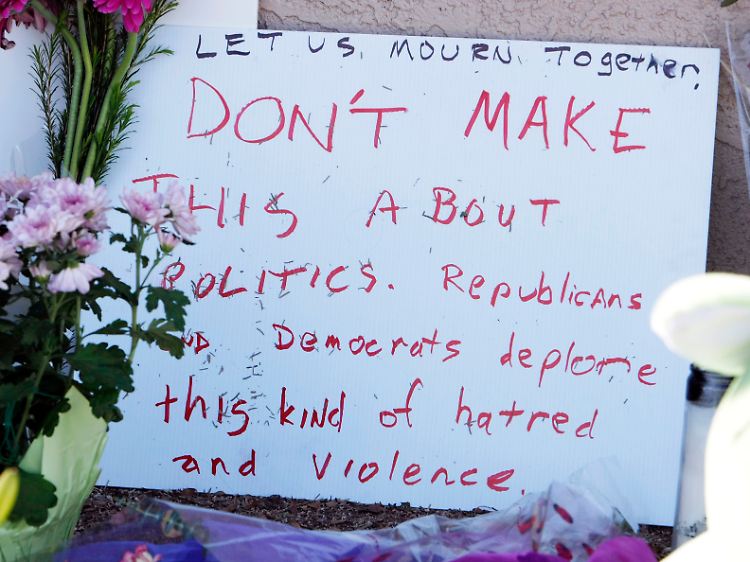 LET US MOURN Together.
DON'T MAKE
THIS ABOUT
POLITICS. Republicans
AND Democrats deplore
this kind of hatred
and violence.